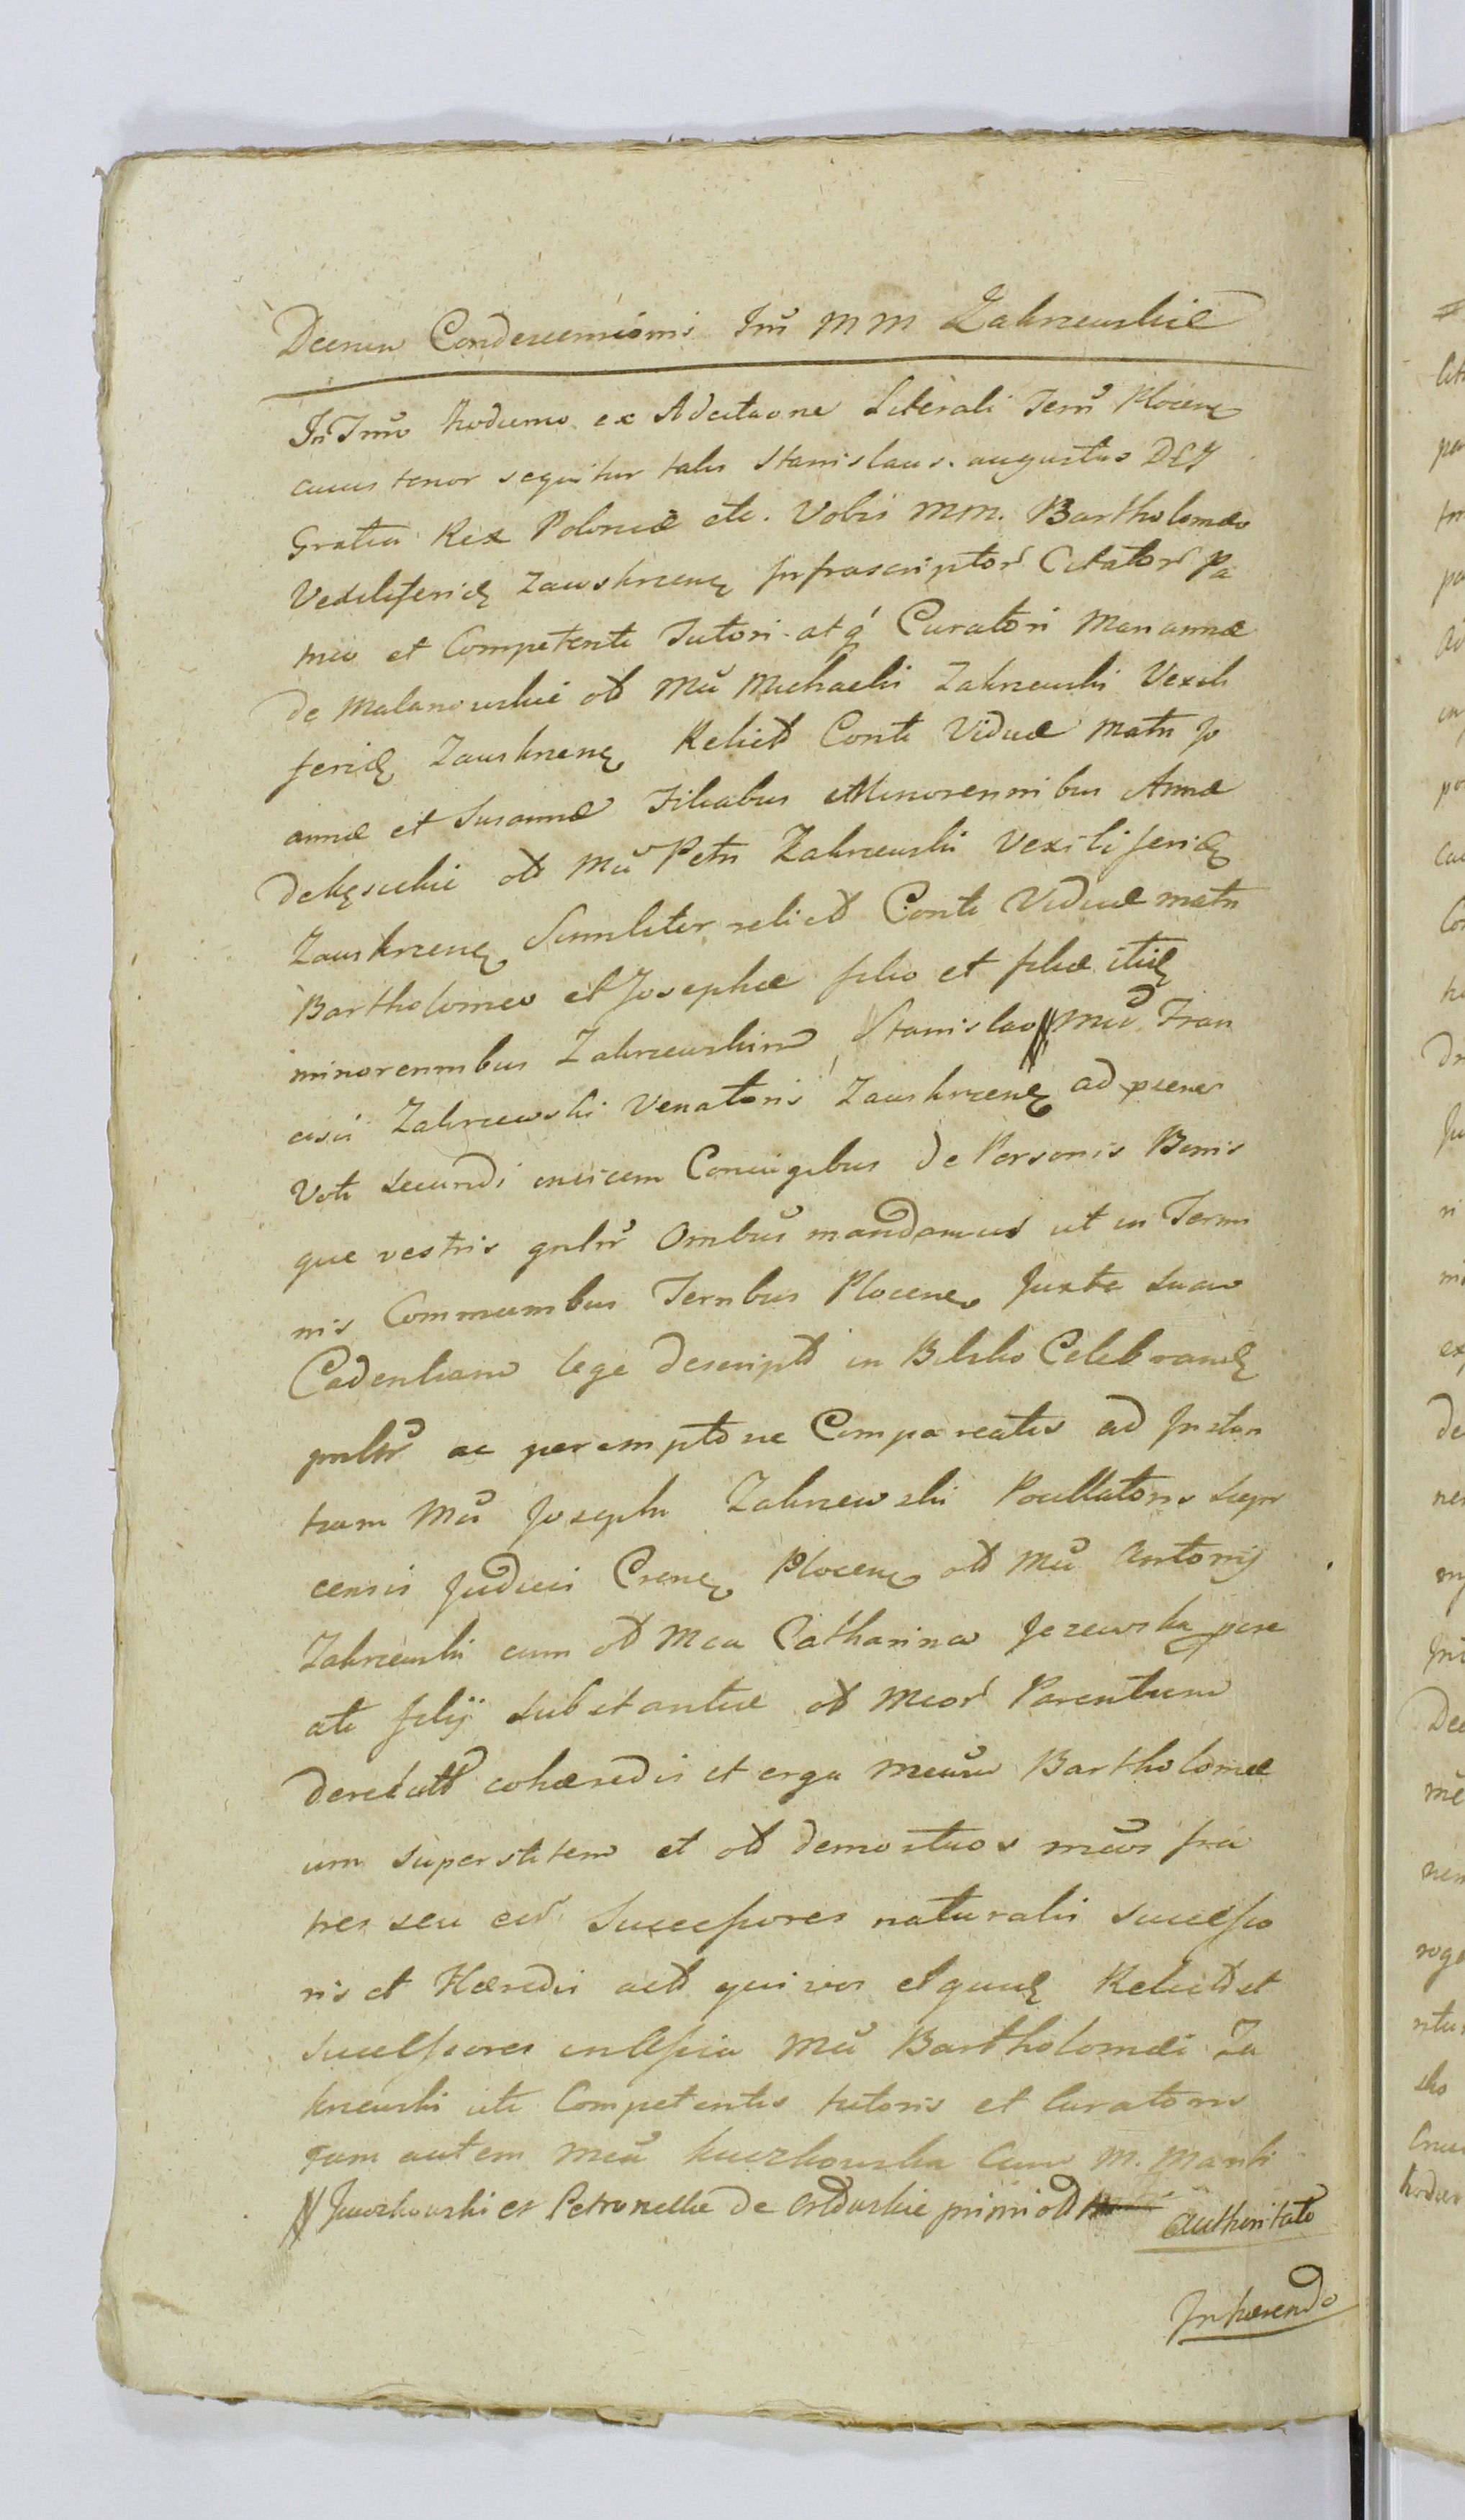 Decretū Condescensionis Inr MM Zakrzewskie
In Trno hodierno ex Adcitaone Literali Terri Plocen
cuius tenor sequitur talis Stanislaus augustus DEI
Gratia Rex Poloniæ etc. Vobis MM. Bartholomæo
Vexiliferidę Zawskrzenę Infrascriptor Citator Pa
truo et Competenti Tutori atq Curatori Mariannæ
de Malanowskie ol MD Michaelis Zakrzewski Vexili
feridę Zawskrzenę Relict Conti Viduæ Matri Jo
annæ et Susannæ Filiabus Minorennibus Annæ
de Kęsickie ol MD Petri Zakrzewski Vexiliferidę
Zawskrzenę Similiter relict Conti Viduæ matri
Bartholomeo et Josephæ filio et filiæ itidę
minorennibus Zakrzewskim Stanislao // MD Fran
cisci Zakrzewski Venatoris Zawskrzenę ad præns
Voti secundi invicem Coniugibus de Personis Bonis
que vestris gnlr Omibus mandamus ut in Termi
nis Communibus Terribus Plocenę Juxta suam
Cadentiam lege descript in Bielsko Celebrandę
pnlr ac peremptorie Compareatis ad Instan
tiam MD Josephi Zakrzewski Pocillatoris Sierp
censis Judicis Crenę Plocenę ol MD Antonij
Zakrzewski cum ol Mca Catharina Jezewska pcre
ati filij substantiæ ol Mcor Parentum
derelict cohæredis et erga Mcum Bartholomæ
um superstitem et ol demortuos mcos fra
tres seu eor Successores naturalis Successo
ris et Hæredis act qui vos et quidę Relict et
successores in assia MD Bartholomæi Za
krzewski uti Competentis tutoris et Curatoris
Tum autem Mca Kuczkowska Cum M. Marito
// Kuczkowski et Petronellæ de Orłowskie primi ol
authoritate
Inhærendo